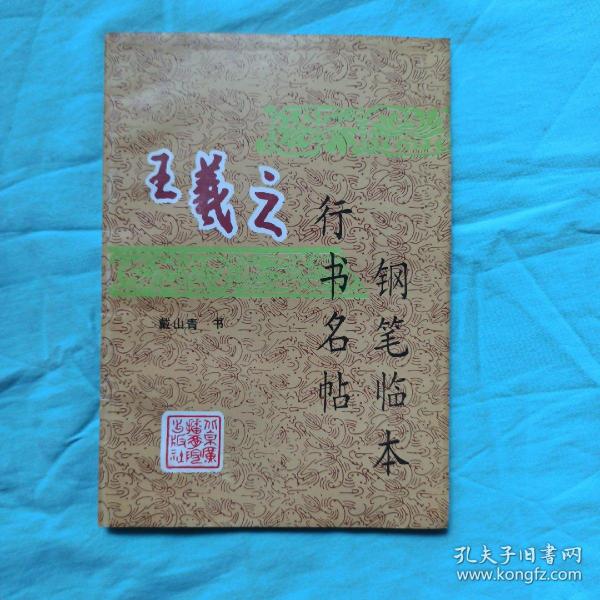 王羲之
行书名帖
钢笔临本
戴山青 书
北京广
播学院
出版社
孔夫子旧书网
www.kongfz.com